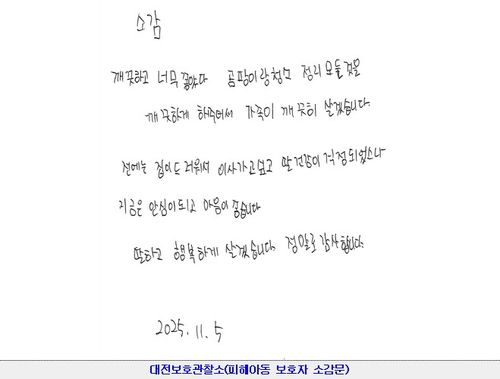 소감
깨끗하고 너무 좋았다 곰팡이랑 청소 정리 모든것을
깨끗하게 해주어서 가족이 깨끗히 살겠습니다
전에는 집이 드러워서 이사가고 싶고 딸 건강이 걱정되었으나
지금은 안심이 되고 마음이 좋습니다
딸하고 행복하게 살겠습니다. 정말로 감사합니다.
2025. 11. 5
대전보호관찰소(피해아동 보호자 소감문)